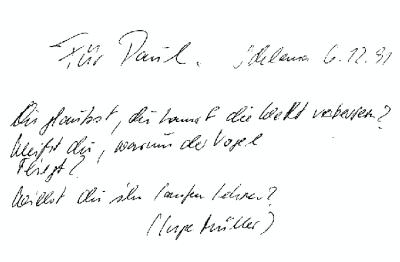 Für Paul. 6.12.91
Du glaubst, du kannst die Welt verbessern?
Weißt du, warum der Vogel
fliegt?
Willst du ihn laufen lehren?
(Inge Müller)